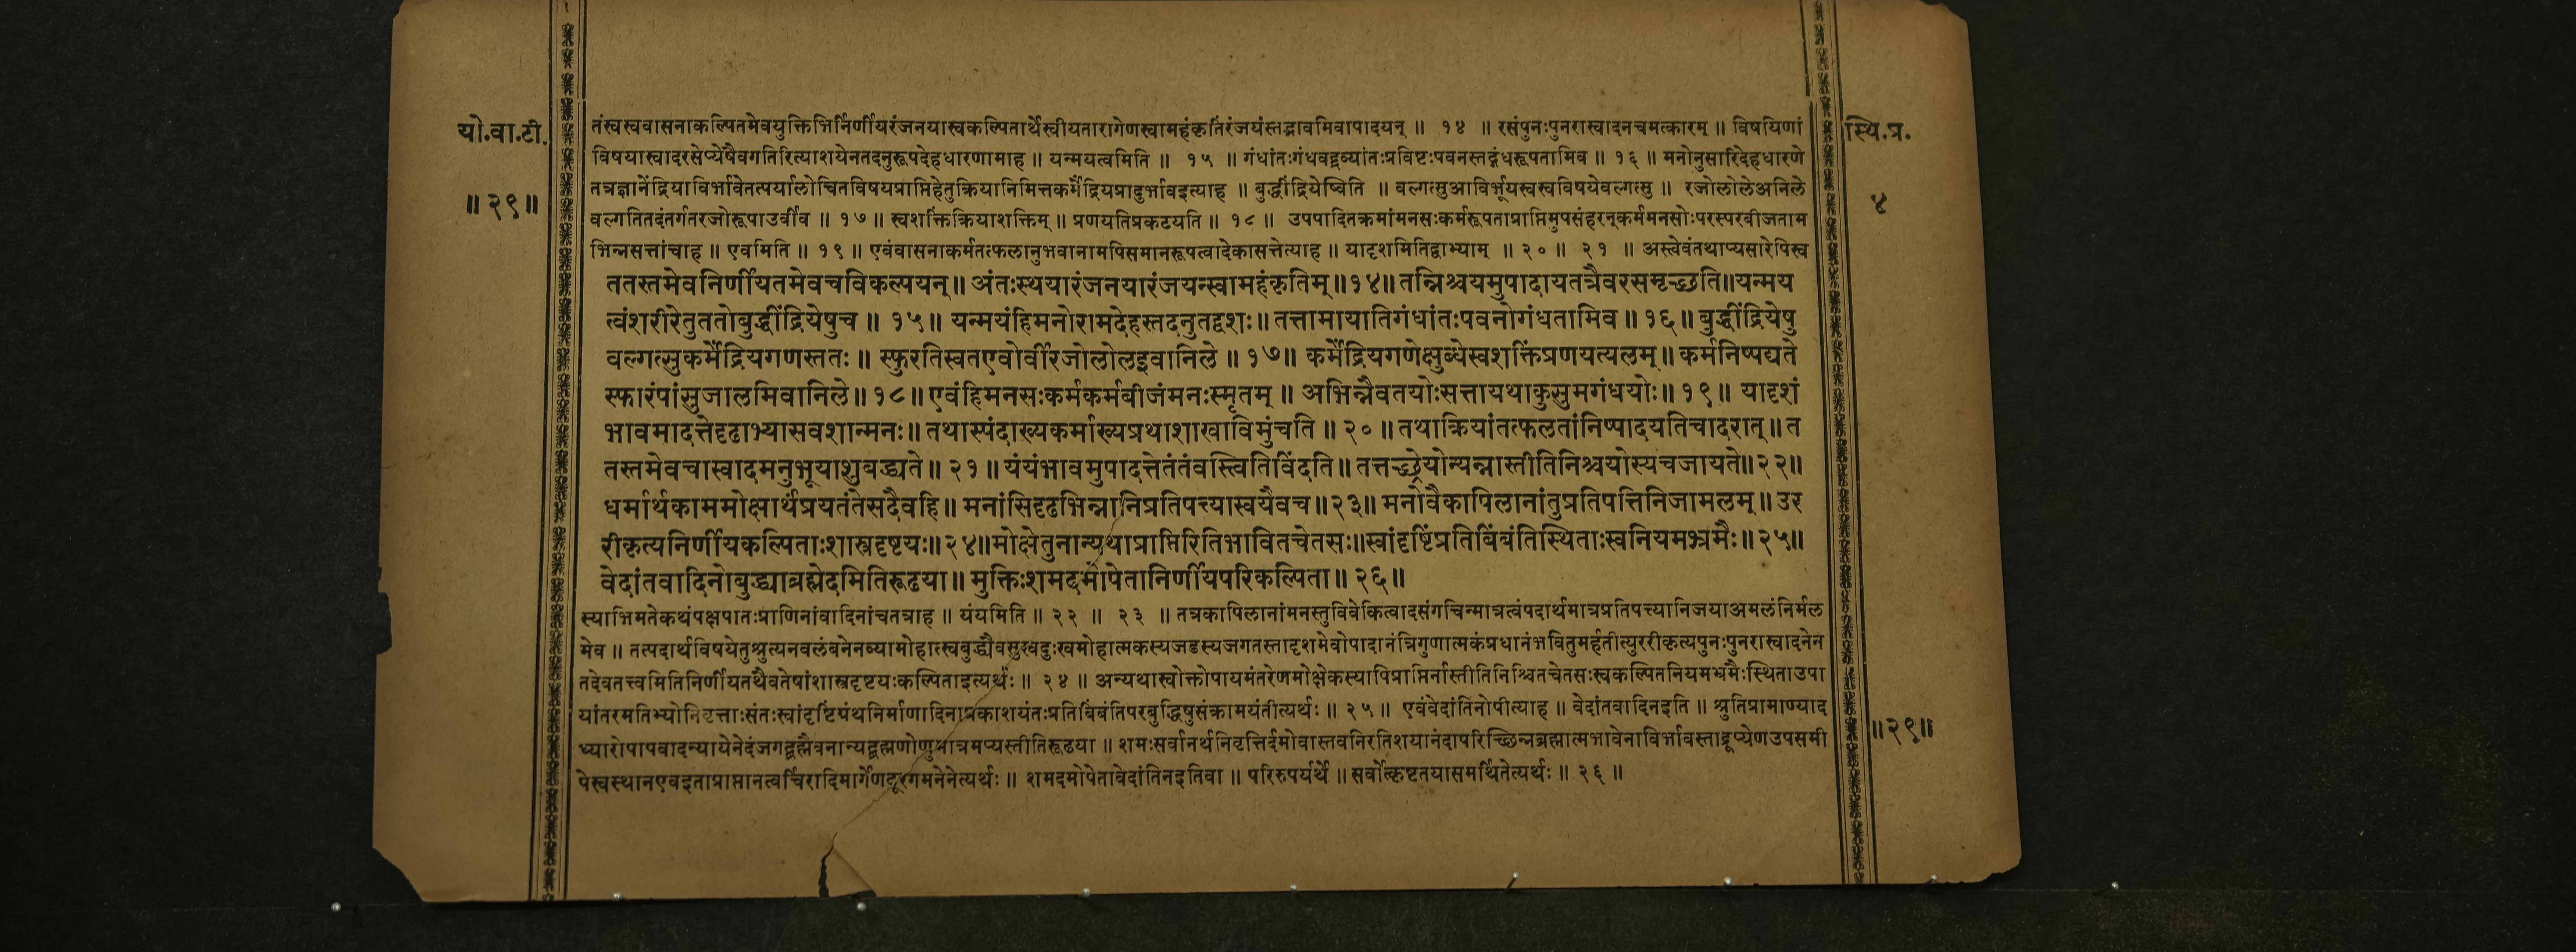 यो.वा.टी.
॥ २९ ॥
स्थि.प्र.
४
तंस्वस्ववासनाकल्पितमेवयुक्तिभिर्निर्णीयरंजनयास्वकल्पितार्थेस्वीयतारागेणस्वामहंकृतिंरंजयंस्तद्भावमिवापादयन् ॥ १४ ॥ रसंपुनःपुनरास्वादनचमत्कारम् ॥ विषयिणां
विषयास्वादरसेप्येषैवगतिरित्याशयेनतदनुरूपदेहधारणामाह ॥ यन्मयत्वमिति ॥ १५ ॥ गंधांतःगंधवद्द्रव्यांतःप्रविष्टःपवनस्तद्गंधरूपतामिव ॥ १६ ॥ मनोनुसारिदेहधारणे
तत्रज्ञानेंद्रियाविर्भावेतत्पर्यालोचितविषयप्राप्तिहेतुक्रियानिमित्तकर्मेंद्रियप्रादुर्भावइत्याह ॥ बुद्धींद्रियेष्विति ॥ वल्गत्सुआविर्भूयस्वस्वविषयेवल्गत्सु ॥ रजोलोलेअनिले
वल्गतितदंतर्गतरजोरूपाउर्वीव ॥ १७ ॥ स्वशक्तिंक्रियाशक्तिम् ॥ प्रणयतिप्रकटयति ॥ १८ ॥ उपपादितक्रमांमनसःकर्मरूपताप्राप्तिमुपसंहरन्कर्ममनसोःपरस्परबीजताम
भिन्नसत्तांचाह ॥ एवमिति ॥ १९ ॥ एवंवासनाकर्मतत्फलानुभवानामपिसमानरूपत्वादेकासत्तेत्याह ॥ यादृशमितिद्वाभ्याम् ॥ २० ॥ २१ ॥ अस्त्वेवंतथाप्यसारेपिस्व
ततस्तमेवनिर्णीयतमेवचविकल्पयन् ॥ अंतःस्थयारंजनयारंजयन्स्वामहंकृतिम् ॥ १४ ॥ तन्निश्चयमुपादायतत्रैवरसमृच्छति ॥ यन्मय
त्वंशरीरेतुततोबुद्धींद्रियेषुच ॥ १५ ॥ यन्मयंहिमनोरामदेहस्तदनुतद्वशः ॥ तत्तामायातिगंधांतःपवनोगंधतामिव ॥ १६ ॥ बुद्धींद्रियेषु
वल्गत्सुकर्मेंद्रियगणस्ततः ॥ स्फुरतिस्वतएवोर्वीरजोलोलइवानिले ॥ १७ ॥ कर्मेंद्रियगणेक्षुब्धेस्वशक्तिंप्रणयत्यलम् ॥ कर्मनिष्पद्यते
स्फारंपांसुजालमिवानिले ॥ १८ ॥ एवंहिमनसःकर्मकर्मबीजंमनःस्मृतम् ॥ अभिन्नैवतयोःसत्तायथाकुसुमगंधयोः ॥ १९ ॥ यादृशं
भावमादत्तेदृढाभ्यासवशान्मनः ॥ तथास्पंदाख्यकर्माख्यप्रथाशाखाविमुंचति ॥ २० ॥ तथाक्रियांतत्फलतांनिष्पादयतिचादरात् ॥ त
तस्तमेवचास्वादमनुभूयाशुबद्ध्यते ॥ २१ ॥ यंयंभावमुपादत्तेतंतंवस्त्वितिविंदति ॥ तत्तच्छ्रेयोन्यन्नास्तीतिनिश्चयोस्यचजायते ॥ २२ ॥
धर्मार्थकाममोक्षार्थंप्रयतंतेसदैवहि ॥ मनांसिदृढभिन्नानिप्रतिपत्त्यास्वयैवच ॥ २३ ॥ मनोवैकापिलानांतुप्रतिपत्तिनिजामलम् ॥ उर
रीकृत्यनिर्णीयकल्पिताःशास्त्रदृष्टयः ॥ २४ ॥ मोक्षेतुनान्यथाप्राप्तिरितिभावितचेतसः ॥ स्वांदृष्टिंप्रतिबिंबंतिस्थिताःस्वनियमभ्रमैः ॥ २५ ॥
वेदांतवादिनोबुद्ध्याब्रह्मेदमितिरूढया ॥ मुक्तिःशमदमोपेतानिर्णीयपरिकल्पिता ॥ २६ ॥
स्याभिमतेकथंपक्षपातःप्राणिनांवादिनांचतत्राह ॥ यंयमिति ॥ २२ ॥ २३ ॥ तत्रकापिलानांमनस्तुविवेकित्वादसंगचिन्मात्रत्वंपदार्थमात्रप्रतिपत्त्यानिजयाअमलंनिर्मल
मेव ॥ तत्पदार्थविषयेतुश्रुत्यनवलंबनेनव्यामोहात्स्वबुद्ध्यैवसुखदुःखमोहात्मकस्यजडस्यजगतस्तादृशमेवोपादानंत्रिगुणात्मकंप्रधानंभवितुमर्हतीत्युररीकृत्यपुनःपुनरास्वादनेन
तदेवतत्त्वमितिनिर्णीयतथैवतेषांशास्त्रदृष्टयःकल्पिताइत्यर्थः ॥ २४ ॥ अन्यथास्वोक्तोपायमंतरेणमोक्षेकस्यापिप्राप्तिर्नास्तीतिनिश्चितचेतसःस्वकल्पितनियमभ्रमैःस्थिताउपा
यांतरमतिभ्योनिवृत्ताःसंतःस्वांदृष्टिंग्रंथनिर्माणादिनाप्रकाशयंतःप्रतिबिंबंतिपरबुद्धिषुसंक्रामयंतीत्यर्थः ॥ २५ ॥ एवंवेदांतिनोपीत्याह ॥ वेदांतवादिनइति ॥ श्रुतिप्रामाण्याद
ध्यारोपापवादन्यायेनेदंजगद्ब्रह्मैवनान्यद्ब्रह्मणोणुमात्रमप्यस्तीतिरूढया ॥ शमःसर्वानर्थनिवृत्तिर्दमोवास्तवनिरतिशयानंदापरिच्छिन्नब्रह्मात्मभावेनाविर्भावस्ताद्रूप्येणउपसमी
पेस्वस्थानएवइताप्राप्तानत्वर्चिरादिमार्गेणदूरगमनेनेत्यर्थः ॥ शमदमोपेतावेदांतिनइतिवा ॥ परिरुपर्यर्थे ॥ सर्वोत्कृष्टतयासमर्थितेत्यर्थः ॥ २६ ॥
॥ २९ ॥